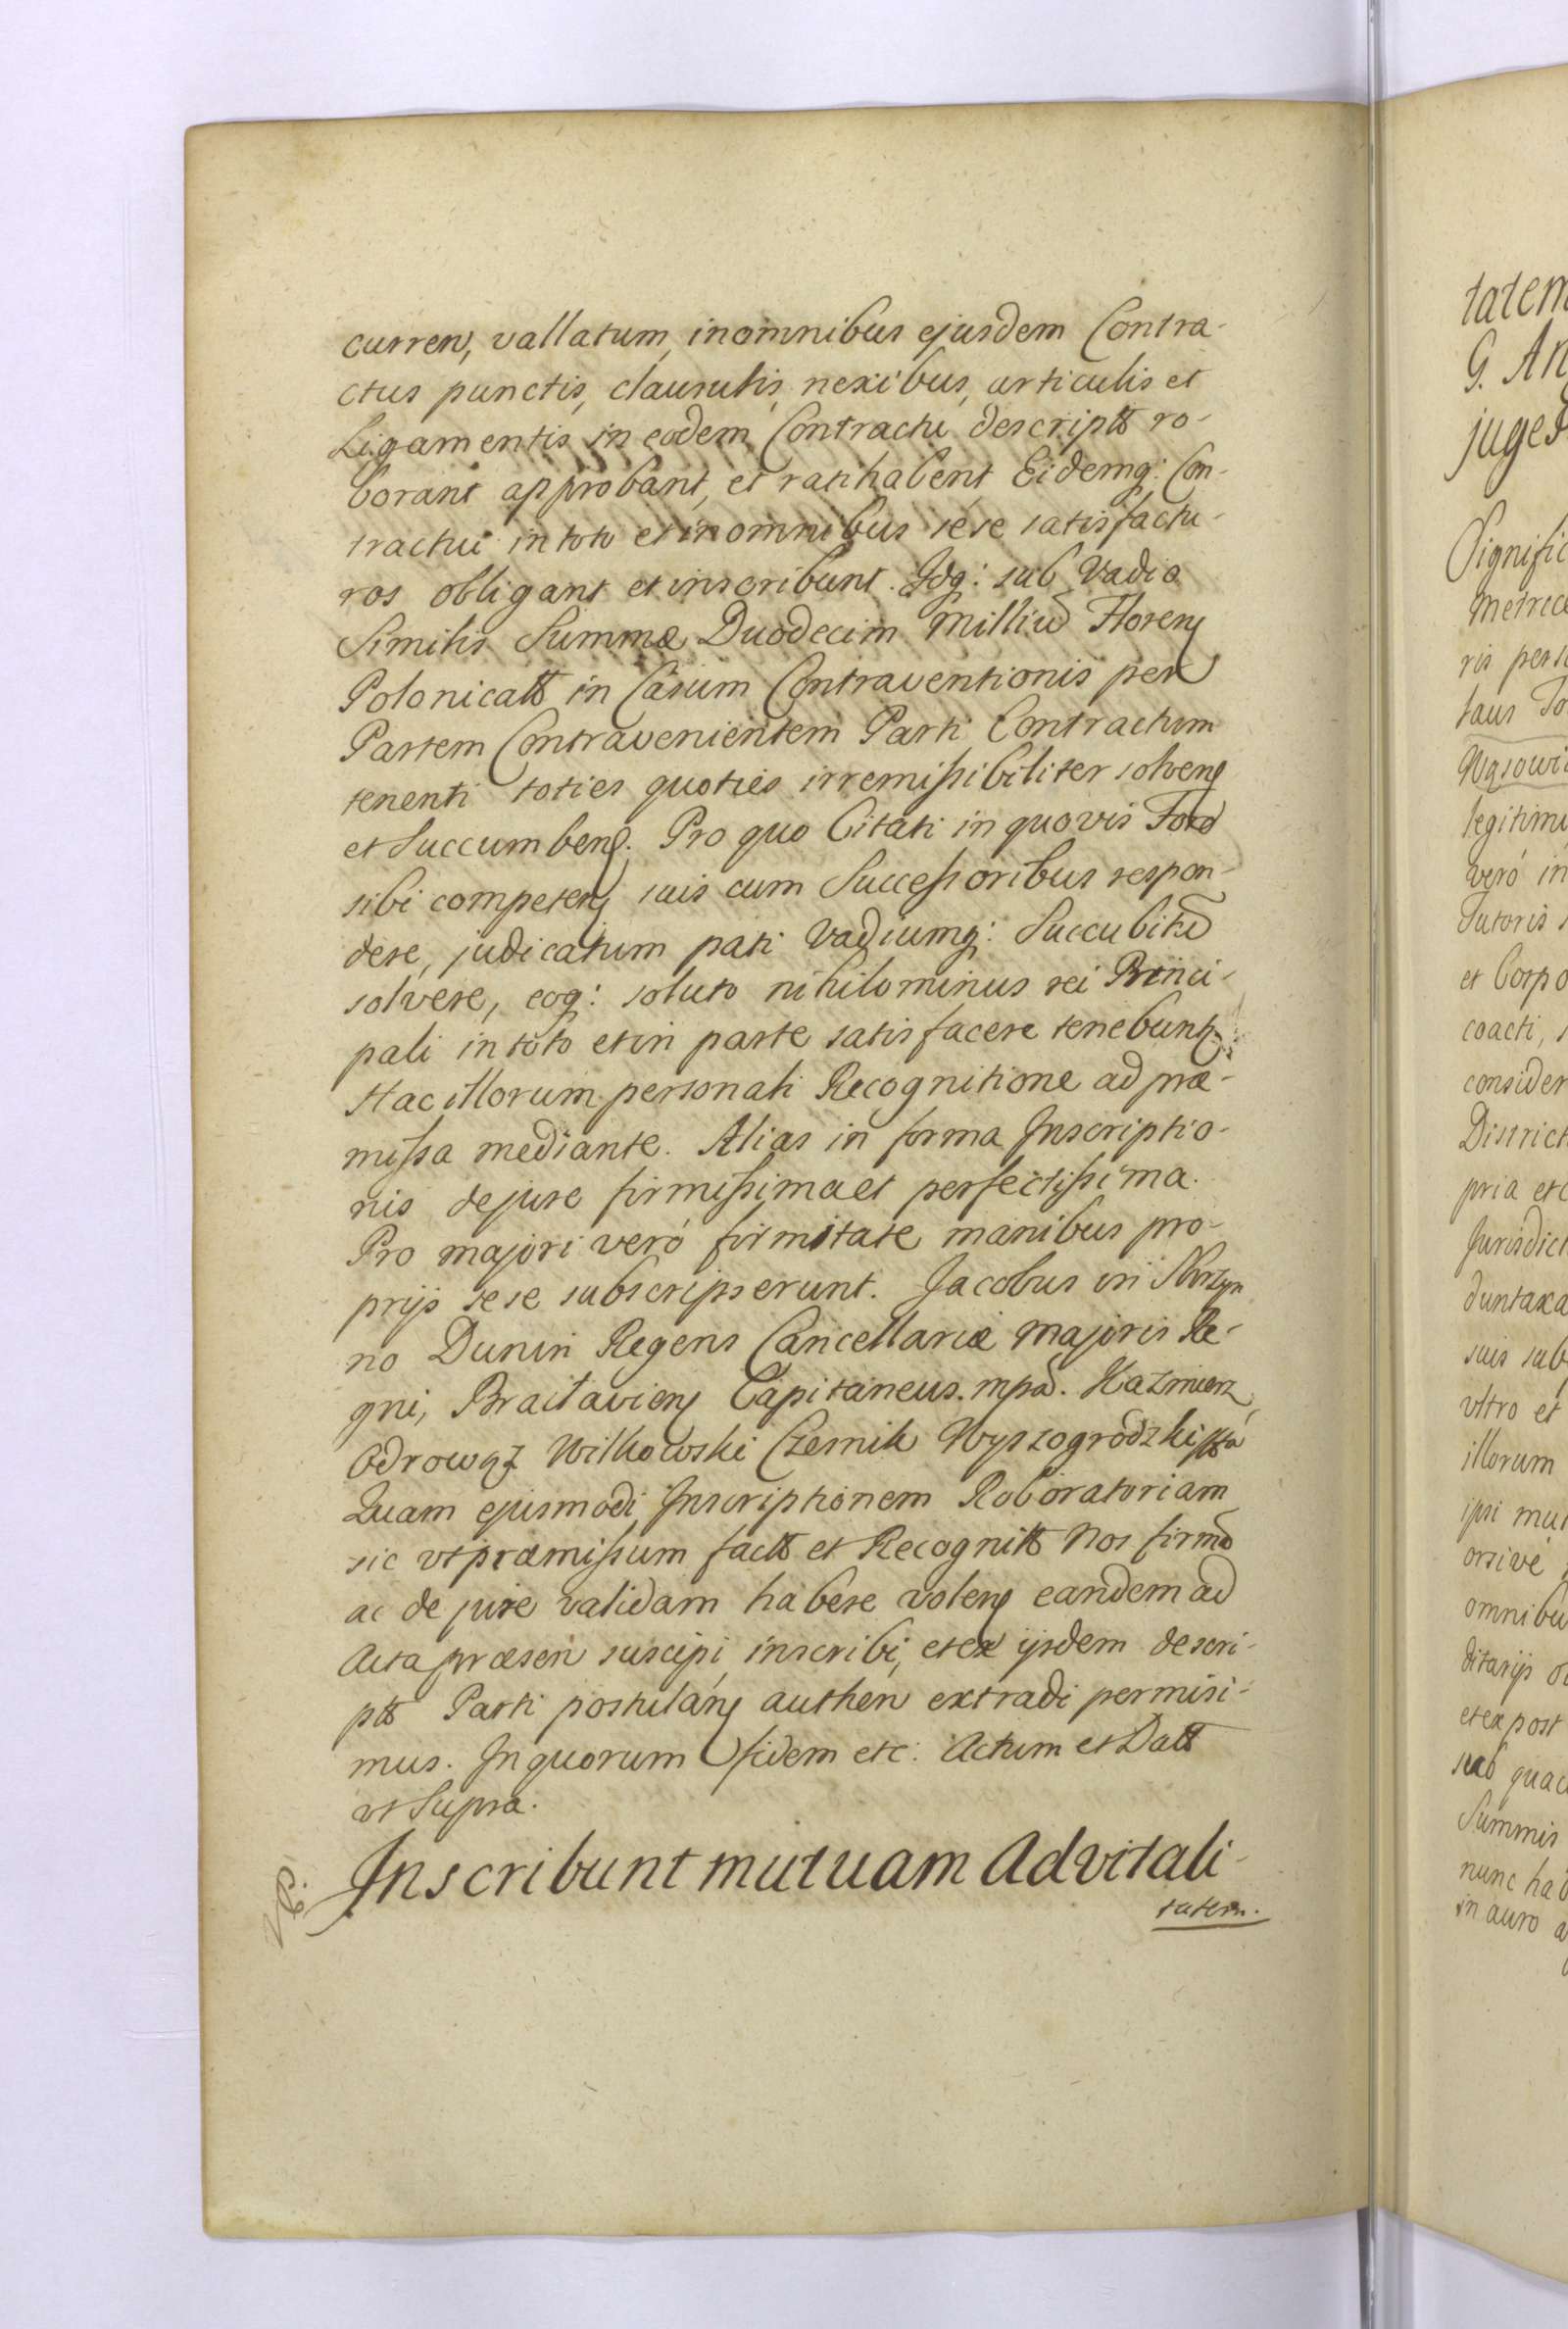 curren, vallatum, in omnibus ejusdem Contra-
ctus punctis, clausulis, nexibus, articulis et
Ligamentis in eodem Contractu descriptt ro-
borant approbant, et ratihabent Eidemq: Con-
tractui in toto et in omnibus sese satisfactu-
ros obligant et inscribunt. Idq: sub Vadio
Similis Summæ Duodecim Milliu Floren
Polonicatt in Casum Contraventionis per
Partem Contravenientem Parti Contractum
tenenti toties quoties irremissibiliter solven
et Succumben. Pro quo Citati in quovis Foro
sibi competen suis cum Successoribus respon-
dere, judicatum pati Vadiumq: Succubitu
solvere, eoq: soluto nihilominus rei Princi-
pali in toto et in parte satisfacere tenebunt
Hac illorum personali Recognitione ad præ-
missa mediante. Alias in forma Inscriptio-
nis de jure firmissima et perfectissima.
Pro majori veró firmitate manibus pro-
prijs sese subscripserunt. Jacobus in Skrzyn
no Dunin Regens Cancellariæ Majoris Re-
gni, Braclavien Capitaneus. mpa. Kazimierz
Odrowąż Wilkowski Czesnik Wyszogrodzki
Quam ejusmodi Inscriptionem Roboratoriam
sic ut præmissum factt et Recognitt Nos firma
ac de jure validam habere volen eandem ad
Acta præsen suscipi, inscribi, et ex ijsdem descri-
ptt Parti postulan authen extradi permisi-
mus. In quorum fidem etc. Actum et Datt
ut Supra.
Inscribunt mutuam Advitali-
tatem.
tatem
G. An
juged
Signific
Metrice
ris pers
legitimi
veró in
Tutoris s
et Corpo
coacti, s
consider
District
pria et
Jurisdict
duntaxa
suis sub
ultro et
illorum
ipsi mu
orsive
omnibu
ditarijs
et ex post
sub quac
Summis
nunc hab
in auro a